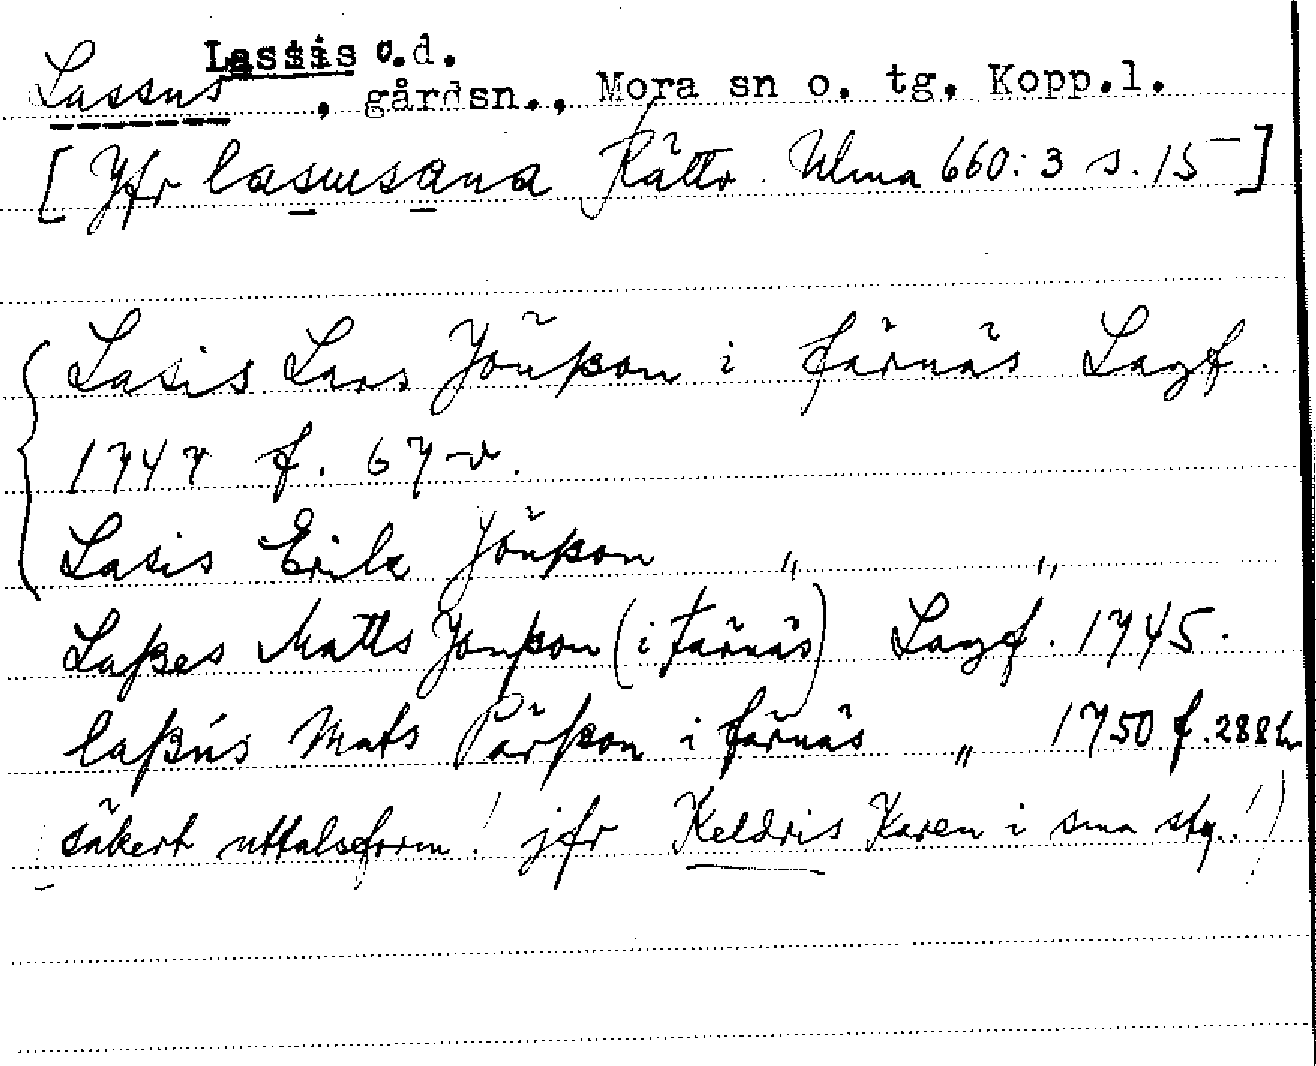 Lassis o.d.
Lassus, gårdsn., Mora sn o. tg. Kopp.l.
[Jfr lasusana Rättv. Ulma 660:3 s. 15]
Lasis Lars Jönßon i Färnäs Lagf.
1747 f. 67 v.
Lasis Erik Jönßon " "
Laßes Matts Jonßon (i Färnäs) Lagf. 1745.
laßus Mats Pärßon i Färnäs " 1750 f. 288
(säkert uttalsform! jfr Keldris Karen i sma stg.!)